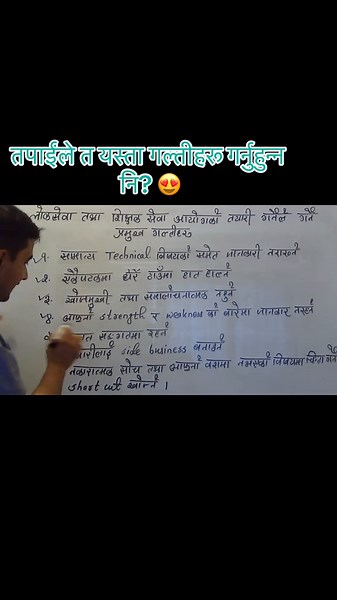 तपाईंले त यस्ता गल्तीहरू गर्नुहुन्न
नि? 😍
लोकसेवा तथा शिक्षक सेवा आयोगको तयारी गर्नेले गर्ने
प्रमुख गल्तीहरू
१. सामान्य Technical विषयको समेत जानकारी नराख्ने
२. एकैपटकमा धेरै ठाउँमा हात हाल्ने
३. खोजमुखी तथा समालोचनात्मक नहुने
४. आफ्नो strength र weakness को बारेमा जानकार नरहने
सङ्गतमा रहने
side business बनाउने
नकारात्मक सोच तथा आफ्नो वशमा नभएको विषयमा चिन्ता गर्ने
short cut खोज्ने ।